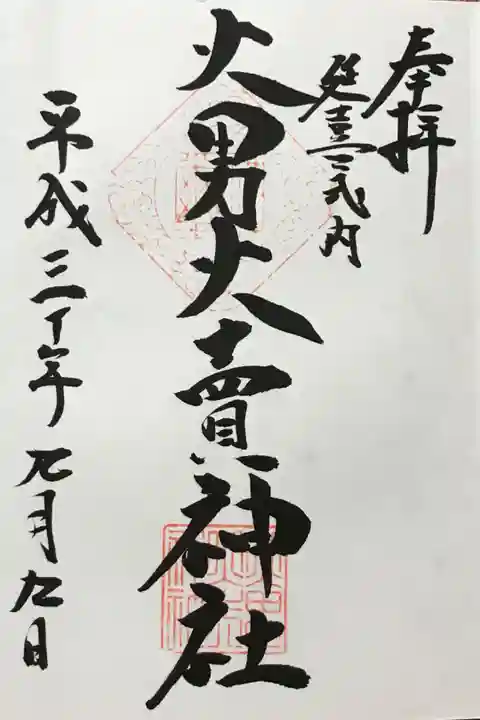 奉拝
延喜式内
火男火賣神社
平成三十年九月九日